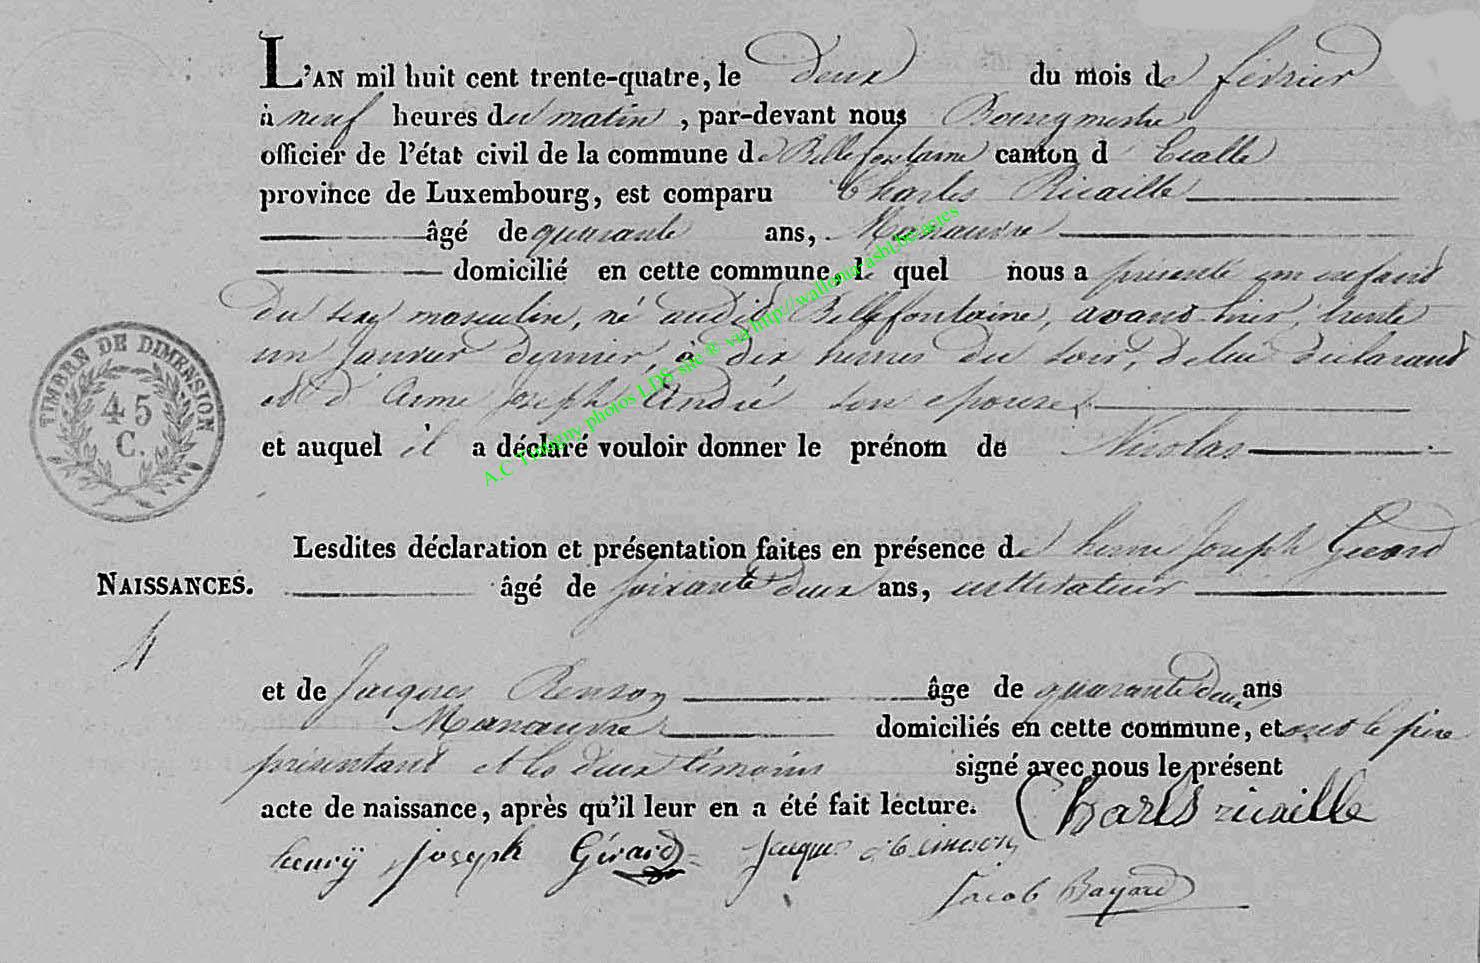 L'AN mil huit cent trente-quatre, le deux du mois de février
à neuf heures du matin, par-devant nous Bourgmestre
officier de l'état civil de la commune de Bellefontaine canton d'Etalle
province de Luxembourg, est comparu Charles Ricaille
âgé de quarante ans, Manœuvre
domicilié en cette commune, le quel nous a présenté un enfant
du sexe masculin, né audit Bellefontaine, avant hier, trente
un janvier dernier, à dix heures du soir, de lui déclarant
et d'Anne Joseph André son épouse
et auquel il a déclaré vouloir donner le prénom de Nicolas
Lesdites déclaration et présentation faites en présence de henri Joseph Gérard
NAISSANCES.
âgé de soixante deux ans, cultivateur
et de Jacques âge de quarante deux ans
Manœuvre domiciliés en cette commune, et ont le père
présentant et les deux témoins signé avec nous le présent
acte de naissance, après qu'il leur en a été fait lecture.
Charls ricaille
henrÿ joseph Gérard Jacque
Jacob Bayard
TIMBRE DE DIMENSION
45
C.
A.C Tintigny photos LDS site ® via http://wallonia-asbl.be/actes